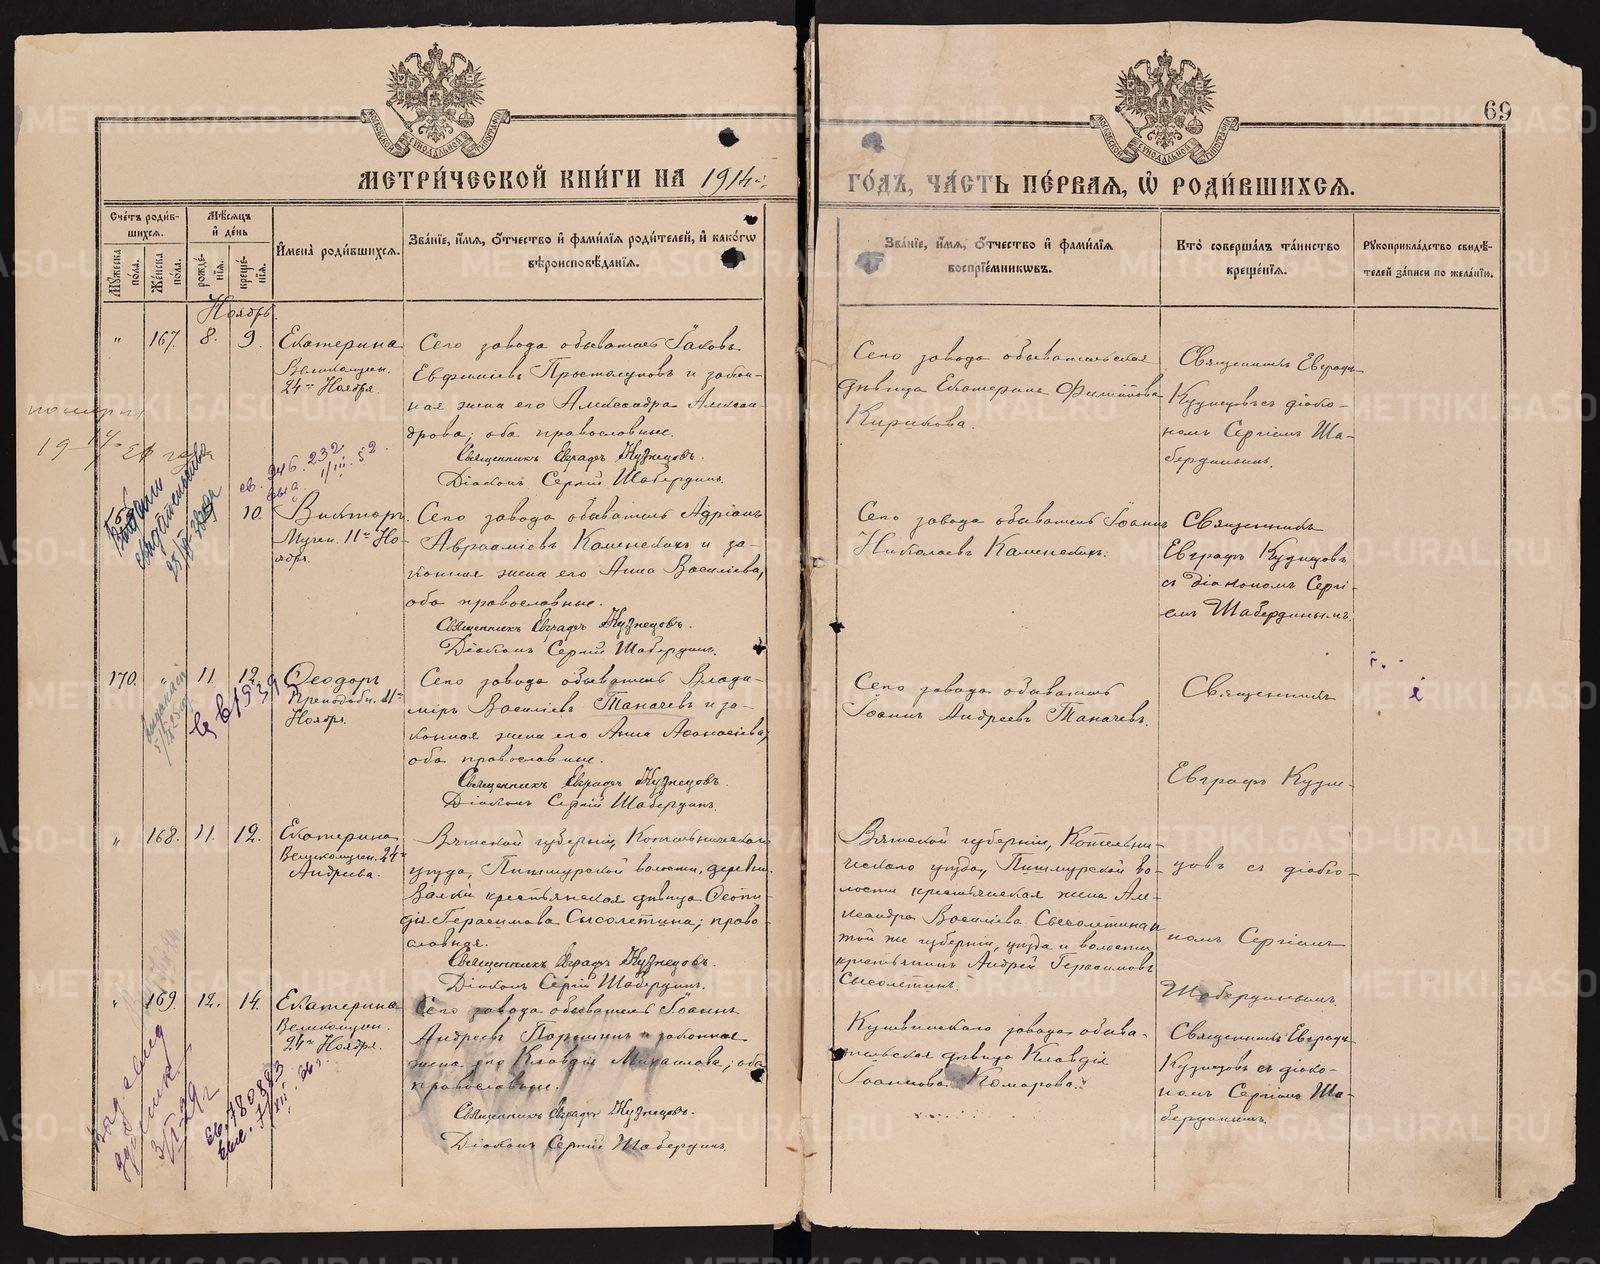 69
МЕТРИ́ЧЕСКОЙ КНИ́ГИ НА 1914 г.
ГО́ДЪ, ЧА́СТЬ ПЕ́РВАЯ, Ѡ҆ РОДИ́ВШИХСЯ.
Сче́тъ роди́в-
шихся.
Мꙋжеска по́ла.
Же́нска по́ла.
Мѣ́сяцъ и҆ де́нь
рожде́-
нїя.
креще́-
нїя.
И҆мена̀ роди́вшихся.
Зва́нїе, и҆́мя, ѻ҆́тчество и҆ фами́лїя роди́телей, и҆ како́гѡ
вѣроисповѣ́данїя.
Зва́нїе, и҆́мя, ѻ҆́тчество и҆ фами́лїя
воспрїе́мникѡвъ.
Кто̀ соверша́лъ та́инство
креще́нїя.
Рꙋкоприкла́дство свидѣ́-
телей за́писи по жела́нїю.
Ноябрь.
" 167. 8. 9. Екатерина
Великомучен.
24го Ноября.
Сего завода обыватель Іаковъ
Евфиміевъ Простолуповъ и закон-
ная жена его Александра Алексан-
дрова; оба православные.
Священникъ Евграфъ Кузнецовъ.
Діаконъ Сергій Шабердинъ.
Сего завода обывательская
дѣвица Екатерина Филиппова
Кирикова.
Священникъ Евграфъ
Кузнецовъ съ діако-
номъ Сергіемъ Ша-
бердинымъ.
10. Викторъ
Мучен. 11го Но-
ября.
Сего завода обыватель Адріанъ
Авраміевъ Каменскихъ и за-
конная жена его Анна Васильева,
оба православные.
Священникъ Евграфъ Кузнецовъ.
Діаконъ Сергій Шабердинъ.
Сего завода обыватель Іоаннъ
Николаевъ Каменскихъ.
Священникъ
Евграфъ Кузнецовъ
съ діакономъ Сергі-
емъ Шабердинымъ.
170. " 11. 12. Ѳеодоръ
Преподобн. 11го
Ноября.
Сего завода обыватель Влади-
міръ Васильевъ Таначевъ и за-
конная жена его Анна Аѳанасіева;
оба православные.
Священникъ Евграфъ Кузнецовъ.
Діаконъ Сергій Шабердинъ.
Сего завода обыватель
Іоаннъ Андреевъ Таначевъ.
Священникъ
Евграфъ Кузне-
цовъ съ діако-
номъ Сергіемъ
Шабердинымъ.
" 168. 11. 12. Екатерина
Великомучен. 24го
Вятской губерніи, Котельническаго
уѣзда, Пишмурской волости, деревни
крестьянская дѣвица
Герасимова Сысолетина; право-
славная.
Священникъ Евграфъ Кузнецовъ.
Діаконъ Сергій Шабердинъ.
Вятской губерніи, Котельни-
ческаго уѣзда, Пишмурской во-
лости крестьянская жена Але-
ксандра Васильева Сысолетина и
той же губерніи, уѣзда и волости
крестьянинъ Андрей Герасимовъ
Сысолетинъ.
" 169. 12. 14. Екатерина
Великомучен.
24го Ноября.
Сего завода обыватель Іоаннъ
Андреевъ Поршинъ и законная
жена его Клавдія Михаилова; оба
православные.
Священникъ Евграфъ Кузнецовъ.
Діаконъ Сергій Шабердинъ.
Кушвинскаго завода обыва-
тельская дѣвица Клавдія
Іоаннова Комарова.
Священникъ Евграфъ
Кузнецовъ съ діако-
номъ Сергіемъ Ша-
бердинымъ.
METRIKI.GASO-URAL.RU